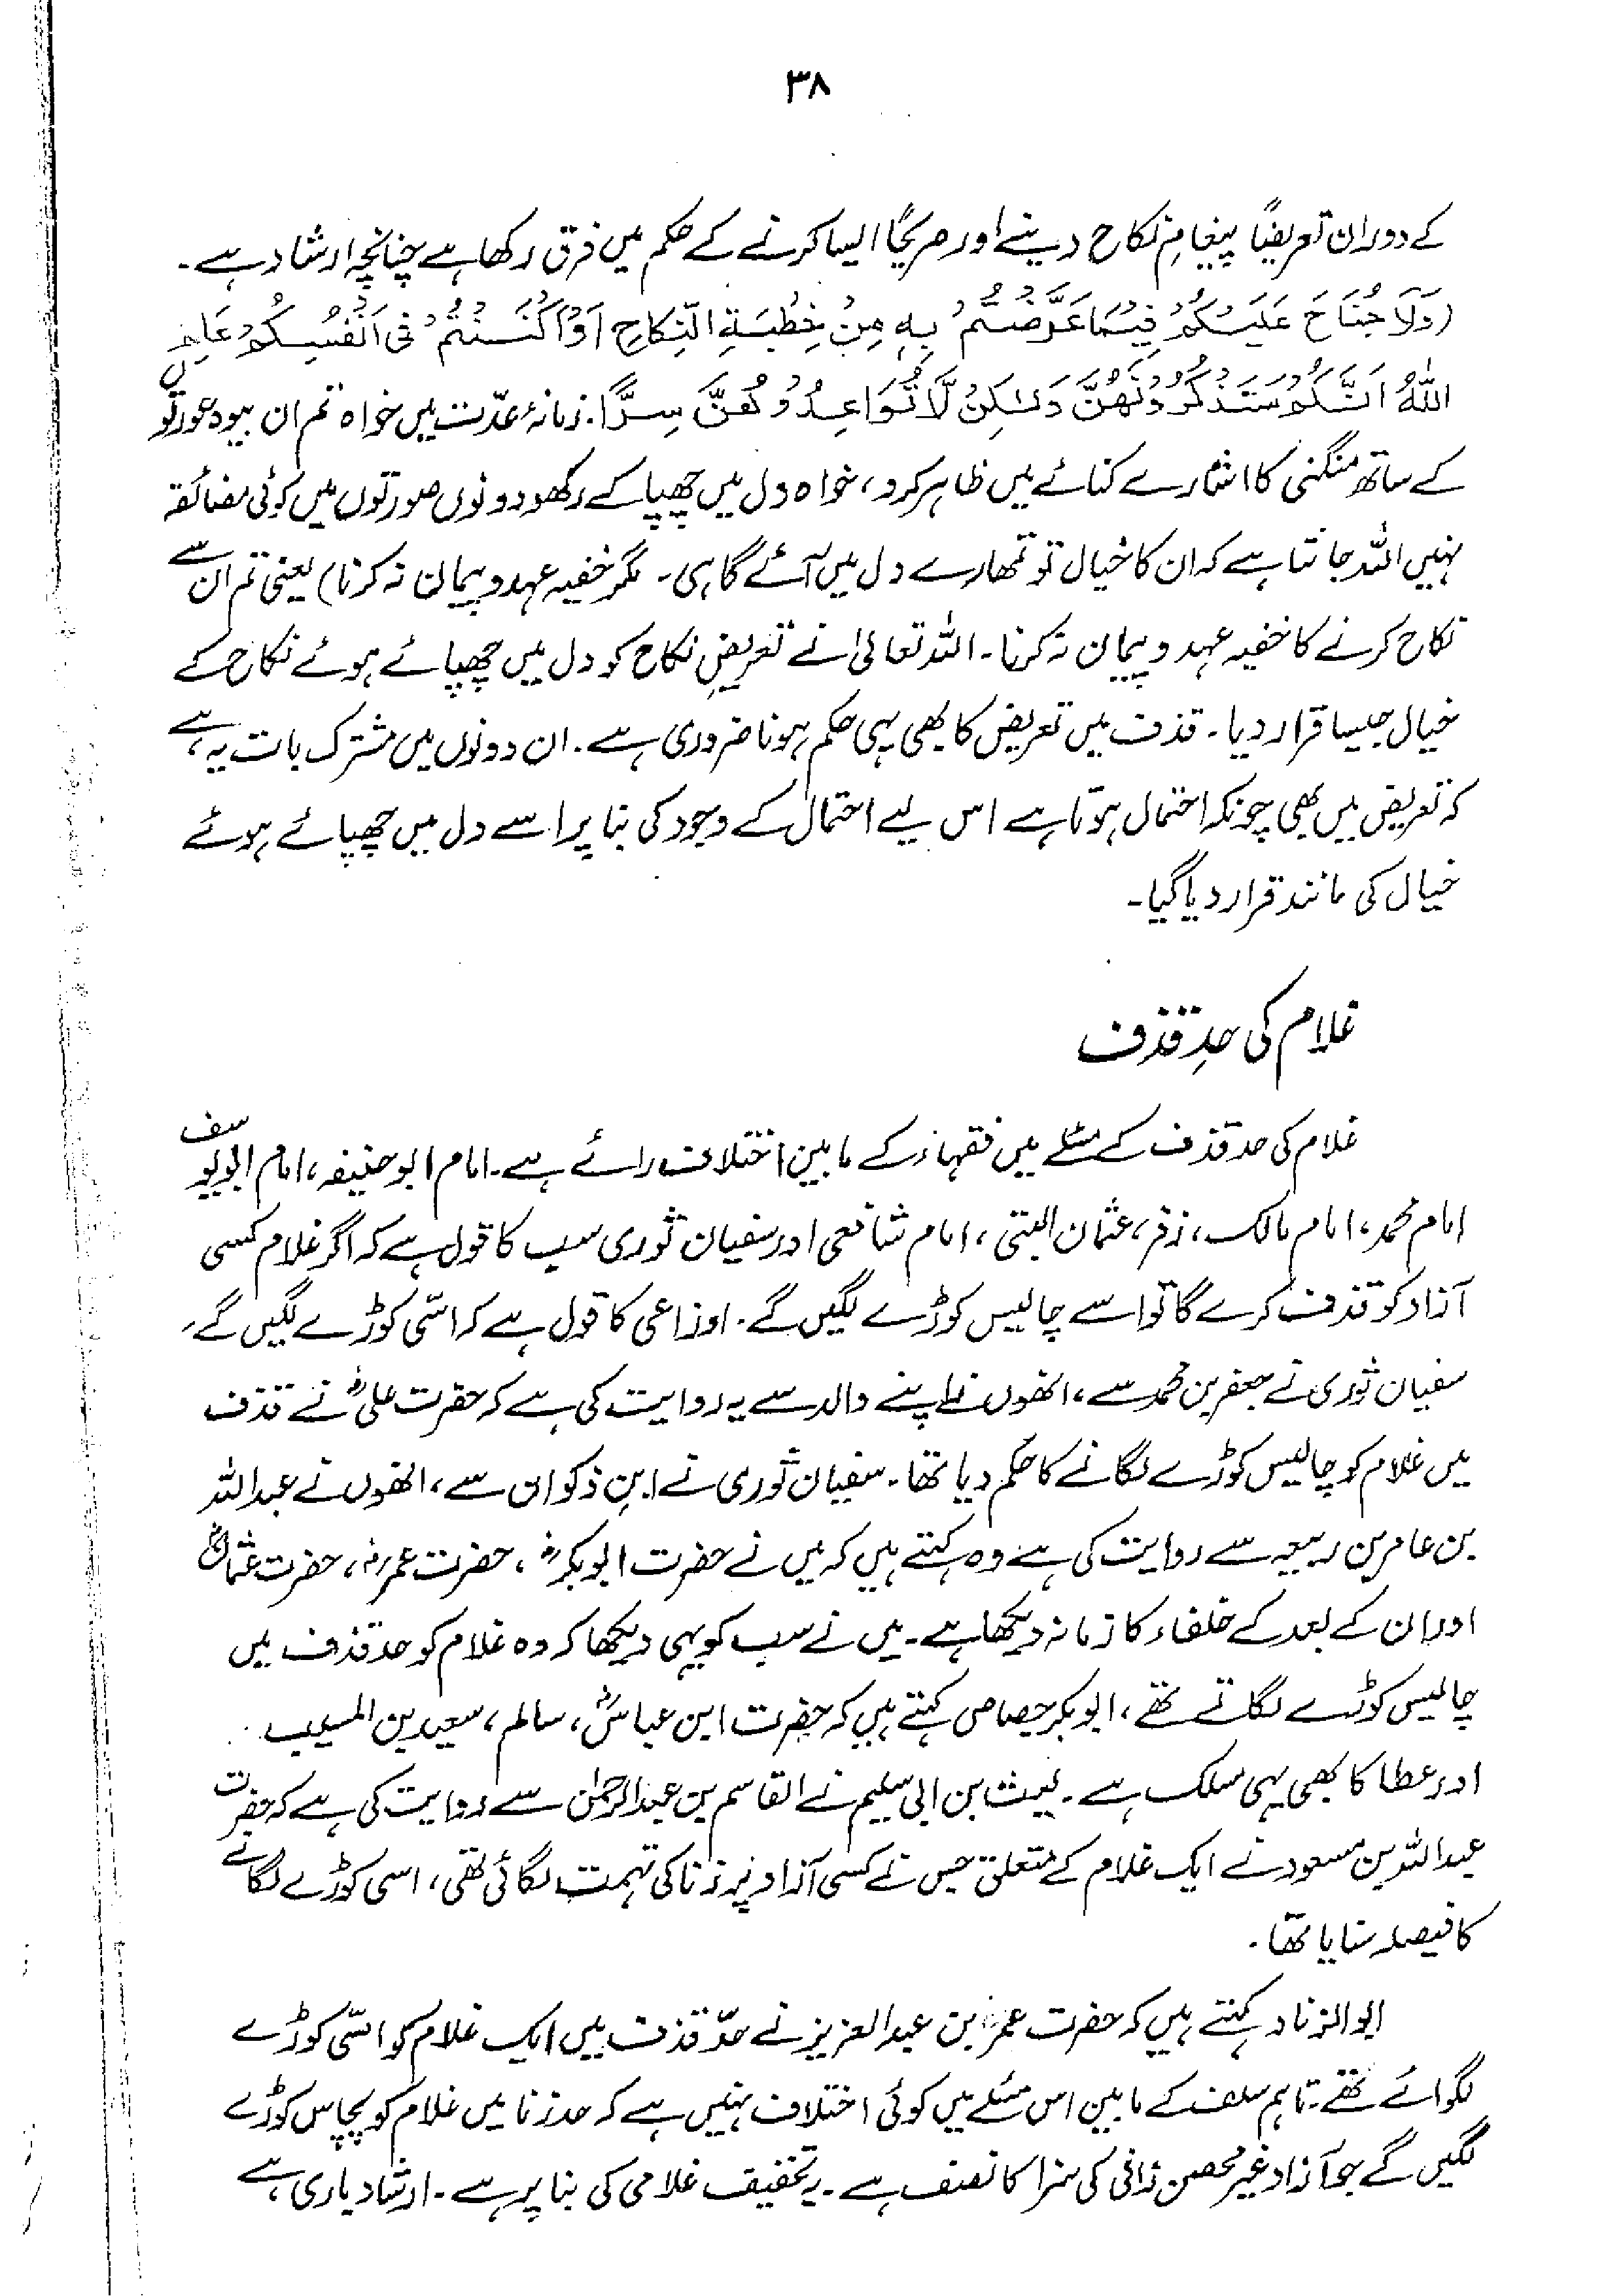 ۳۸
کے دوران تعریضًا پیغامِ نکاح دینے اور صریحًا ایسا کرنے کے حکم میں فرق رکھا ہے چنانچہ ارشاد ہے۔
(وَلَا جُنَاحَ عَلَیْکُمْ فِیْمَا عَرَّضْتُمْ بِہٖ مِنْ خِطْبَۃِ النِّکَاحِ اَوْ اَکْنَنْتُمْ فِیْ اَنْفُسِکُمْ عَلِمَ
اللّٰہُ اَنَّکُمْ سَتَذْکُرُوْنَھُنَّ وَلٰکِنْ لَّا تُوَاعِدُوْھُنَّ سِرًّا. زمانۂ عدّت میں خواہ تم ان بیوہ عورتوں
کے ساتھ منگنی کا اشارے کنائے میں ظاہر کرو، خواہ دل میں چھپا کے رکھو دونوں صورتوں میں کوئی مضائقہ
نہیں اللہ جانتا ہے کہ ان کا خیال تو تمھارے دل میں آئے گا ہی۔ مگر خفیہ عہد و پیمان نہ کرنا) یعنی تم ان سے
نکاح کرنے کا خفیہ عہد و پیمان نہ کرنا۔ اللہ تعالیٰ نے تعریضِ نکاح کو دل میں چھپائے ہوئے نکاح کے
خیال جیسا قرار دیا۔ قذف میں تعریض کا بھی یہی حکم ہونا ضروری ہے۔ ان دونوں میں مشترک بات یہ ہے
کہ تعریض میں بھی چونکہ احتمال ہوتا ہے اس لیے احتمال کے وجود کی بنا پر اسے دل میں چھپائے ہوئے
خیال کی مانند قرار دیا گیا۔
غلام کی حدِ قذف
غلام کی حد قذف کے مسئلے میں فقہاء کے مابین اختلاف رائے ہے۔ امام ابو حنیفہ، امام ابو یوسف
امام محمد، امام مالک، زفر، عثمان البتی، امام شافعی اور سفیان ثوری سب کا قول ہے کہ اگر غلام کسی
آزاد کو قذف کرے گا تو اسے چالیس کوڑے لگیں گے۔ اوزاعی کا قول ہے کہ اسّی کوڑے لگیں گے۔
سفیان ثوری نے جعفر بن محمد سے، انھوں نے اپنے والد سے یہ روایت کی ہے کہ حضرت علیؓ نے قذف
میں غلام کو چالیس کوڑے لگانے کا حکم دیا تھا۔ سفیان ثوری نے ابن ذکوان سے، انھوں نے عبداللہ
بن عامر بن ربیعہ سے روایت کی ہے وہ کہتے ہیں کہ میں نے حضرت ابوبکرؓ، حضرت عمرؓ، حضرت عثمانؓ
اور ان کے بعد کے خلفاء کا زمانہ دیکھا ہے۔ میں نے سب کو یہی دیکھا کہ وہ غلام کو حد قذف میں
چالیس کوڑے لگاتے تھے، ابوبکر جصاص کہتے ہیں کہ حضرت ابن عباسؓ، سالم، سعید بن المسیب
اور عطا کا بھی یہی مسلک ہے۔ لیث بن ابی سلیم نے القاسم بن عبدالرحمٰن سے روایت کی ہے کہ حضرت
عبداللہ بن مسعود نے ایک غلام کے متعلق جس نے کسی آزاد پر زنا کی تہمت لگائی تھی، اسی کوڑے لگانے
کا فیصلہ سنایا تھا۔
ابو الزناد کہتے ہیں کہ حضرت عمرؒ بن عبدالعزیز نے حدّ قذف میں ایک غلام کو اسّی کوڑے
لگوائے تھے۔ تاہم سلف کے مابین اس مسئلے میں کوئی اختلاف نہیں ہے کہ حد زنا میں غلام کو پچاس کوڑے
لگیں گے جو آزاد غیر محصن زانی کی سزا کا نصف ہے۔ یہ تخفیف غلامی کی بنا پر ہے۔ ارشاد باری ہے